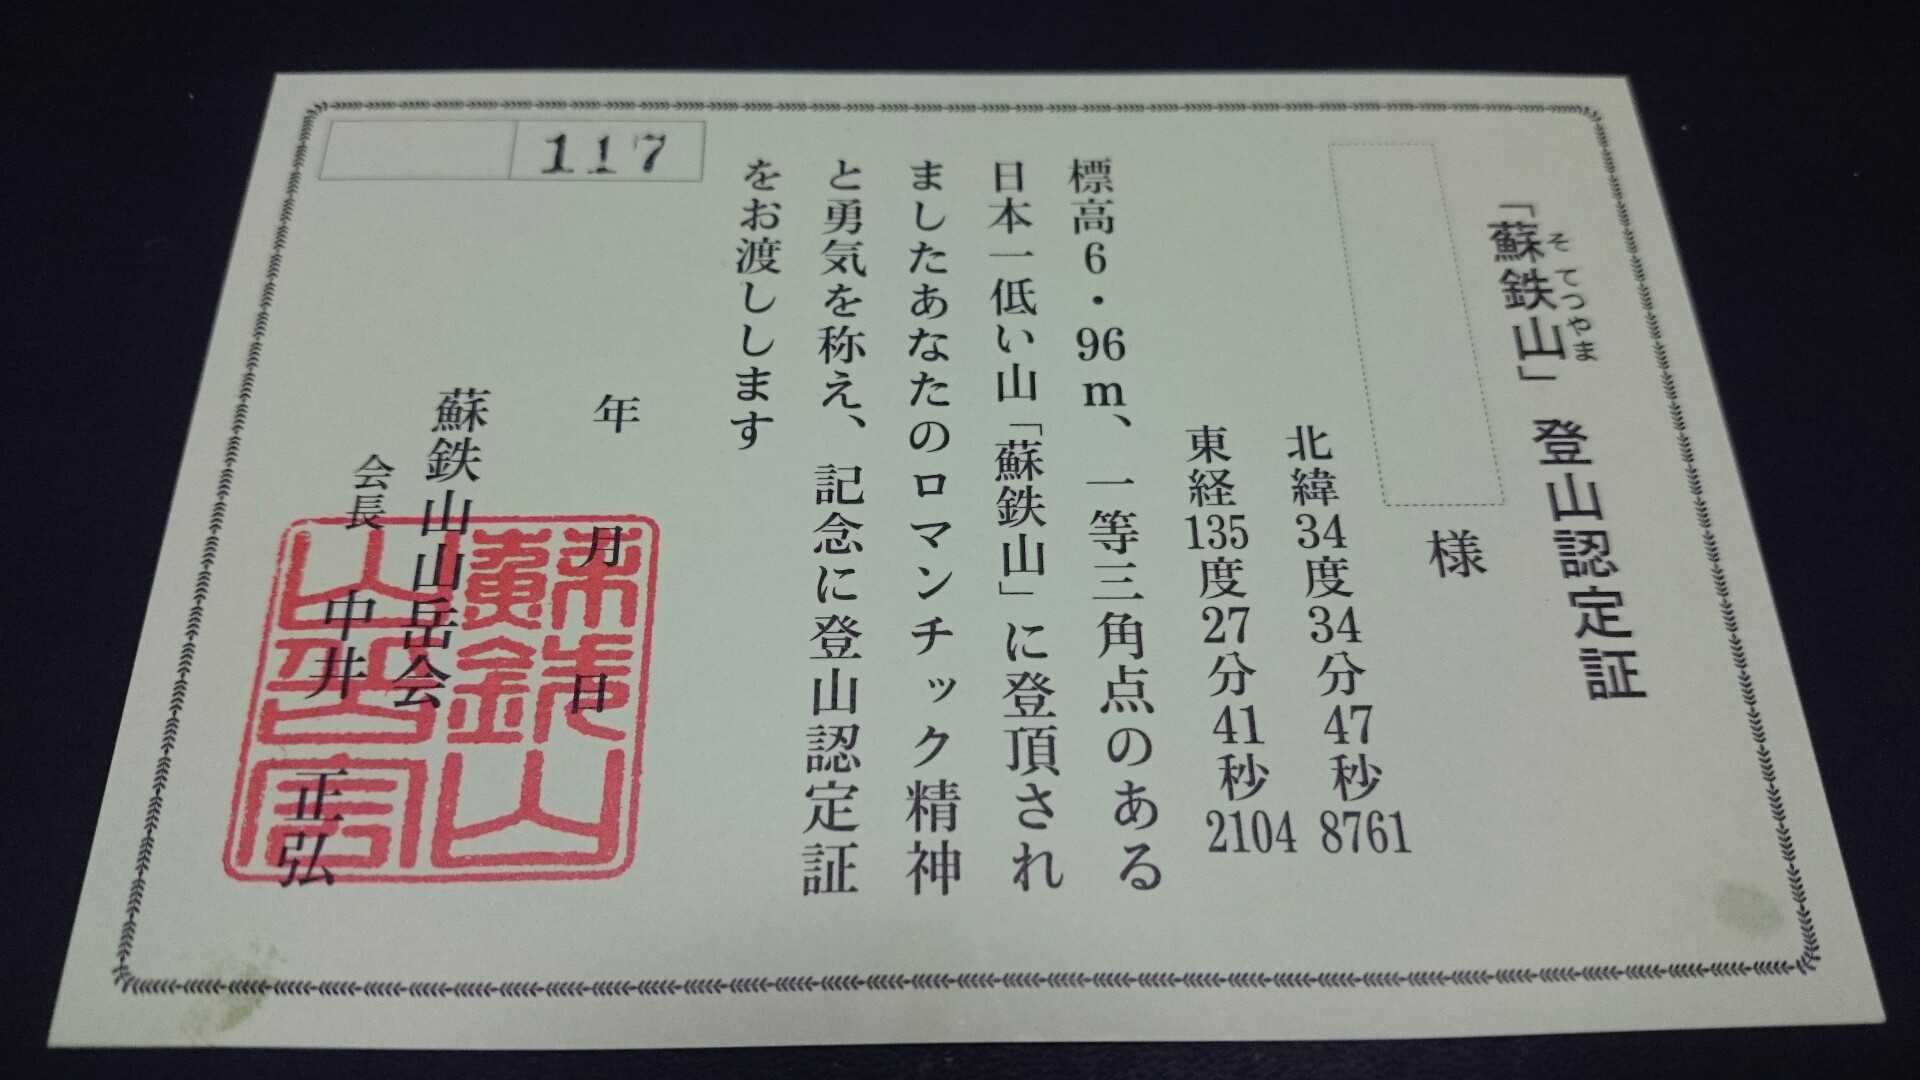 「蘇鉄山」登山認定証
そてつやま
様
北緯34度34分47秒8761
東経135度27分41秒2104
標高6・96m、一等三角点のある
日本一低い山「蘇鉄山」に登頂され
ましたあなたのロマンチック精神
と勇気を称え、記念に登山認定証
をお渡しします
年 月 日
蘇鉄山山岳会
会長 中井 正弘
117